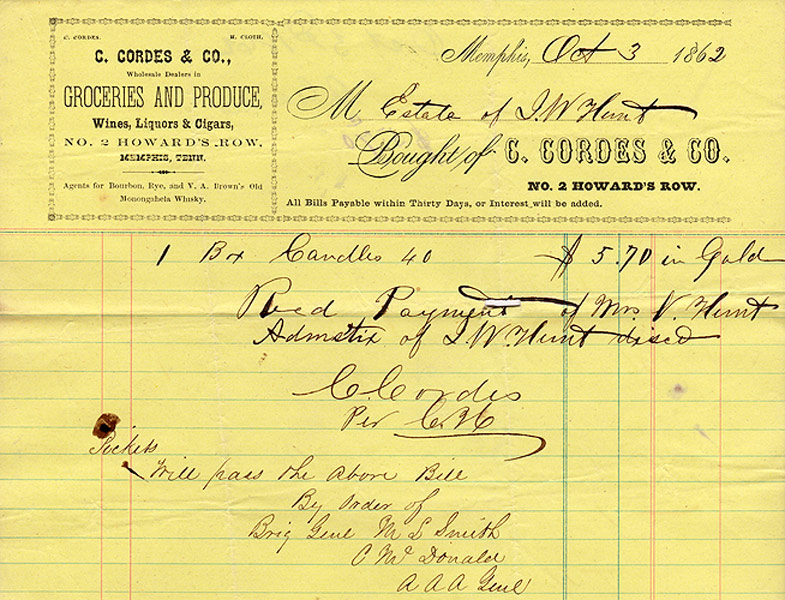 C. CORDES. H. CLOTH.
C. CORDES & CO.,
Wholesale Dealers in
GROCERIES AND PRODUCE,
Wines, Liquors & Cigars,
NO. 2 HOWARD'S ROW,
MEMPHIS, TENN.
Agents for Bourbon, Rye, and V. A. Brown's Old
Monongahela Whisky.
Memphis, Oct 3 1862
M Estate of J. W. Hunt
Bought of C. CORDES & CO.
NO. 2 HOWARD'S ROW.
All Bills Payable within Thirty Days, or Interest will be added.
1 Box Candles 40 $ 5.70 in Gold
Recd Payment of Mrs V. Hunt
Admstix of J. W. Hunt discd
C. Cordes
Per
Pickets
Will pass the above Bill
By order of
Brig Genl M L Smith
C Mc Donald
A A A Genl